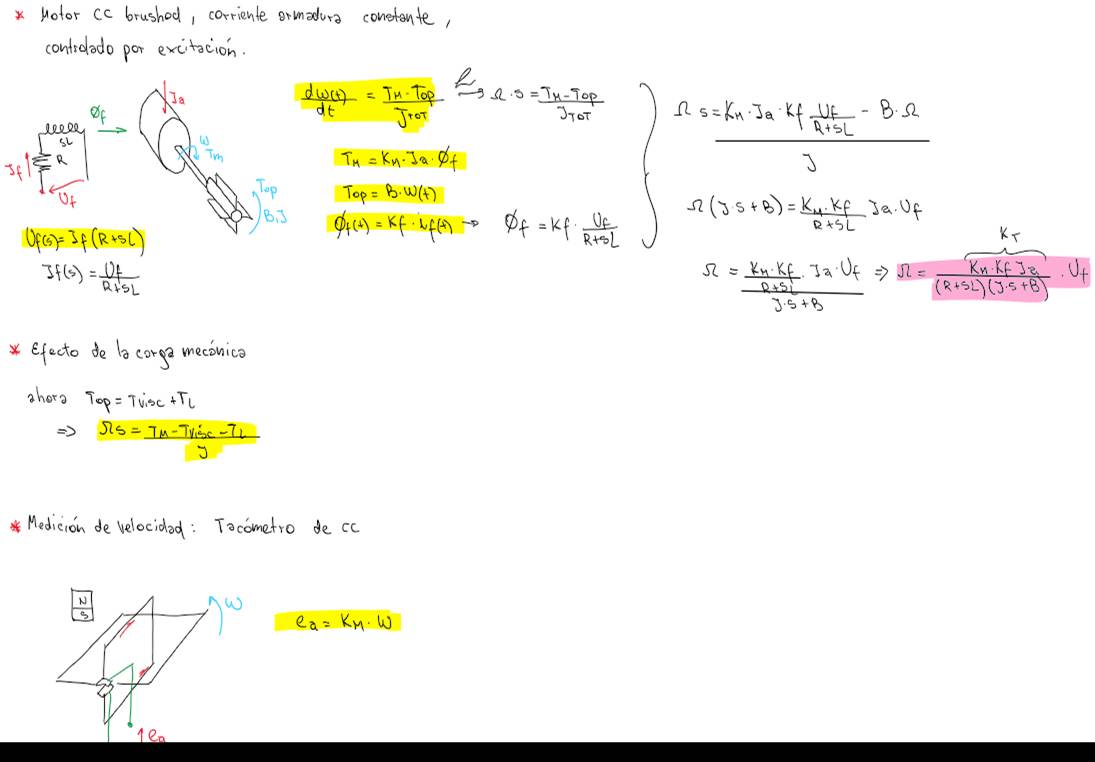 * Motor CC brushed, corriente armadura constante,
controlado por excitación.
Ja
Øf
SL
R
Jf
Uf
ω
Tm
Top
B,J
Uf(s) = Jf (R+SL)
Jf(s) = Uf / R+SL
dω(t)/dt = TM - Top / JTOT → Ω·s = TM - Top / JTOT
TM = KM·Ja·Øf
Top = B·ω(t)
Øf(t) = Kf·if(t) → Øf = Kf·Uf / R+SL
Ω s = KM·Ja·Kf Uf / R+SL - B·Ω / J
Ω (J·s+B) = KM·Kf / R+SL Ja·Uf
Ω = KM·Kf / R+SL · Ja·Uf / J·s+B ⇒ Ω = KM·Kf Ja / (R+SL)(J·s+B) · Uf
KT
* Efecto de la carga mecánica
ahora Top = Tvisc + TL
⇒ Ωs = TM - Tvisc - TL / J
* Medición de velocidad: Tacómetro de CC
N
S
ω
ea = KM·ω
ea